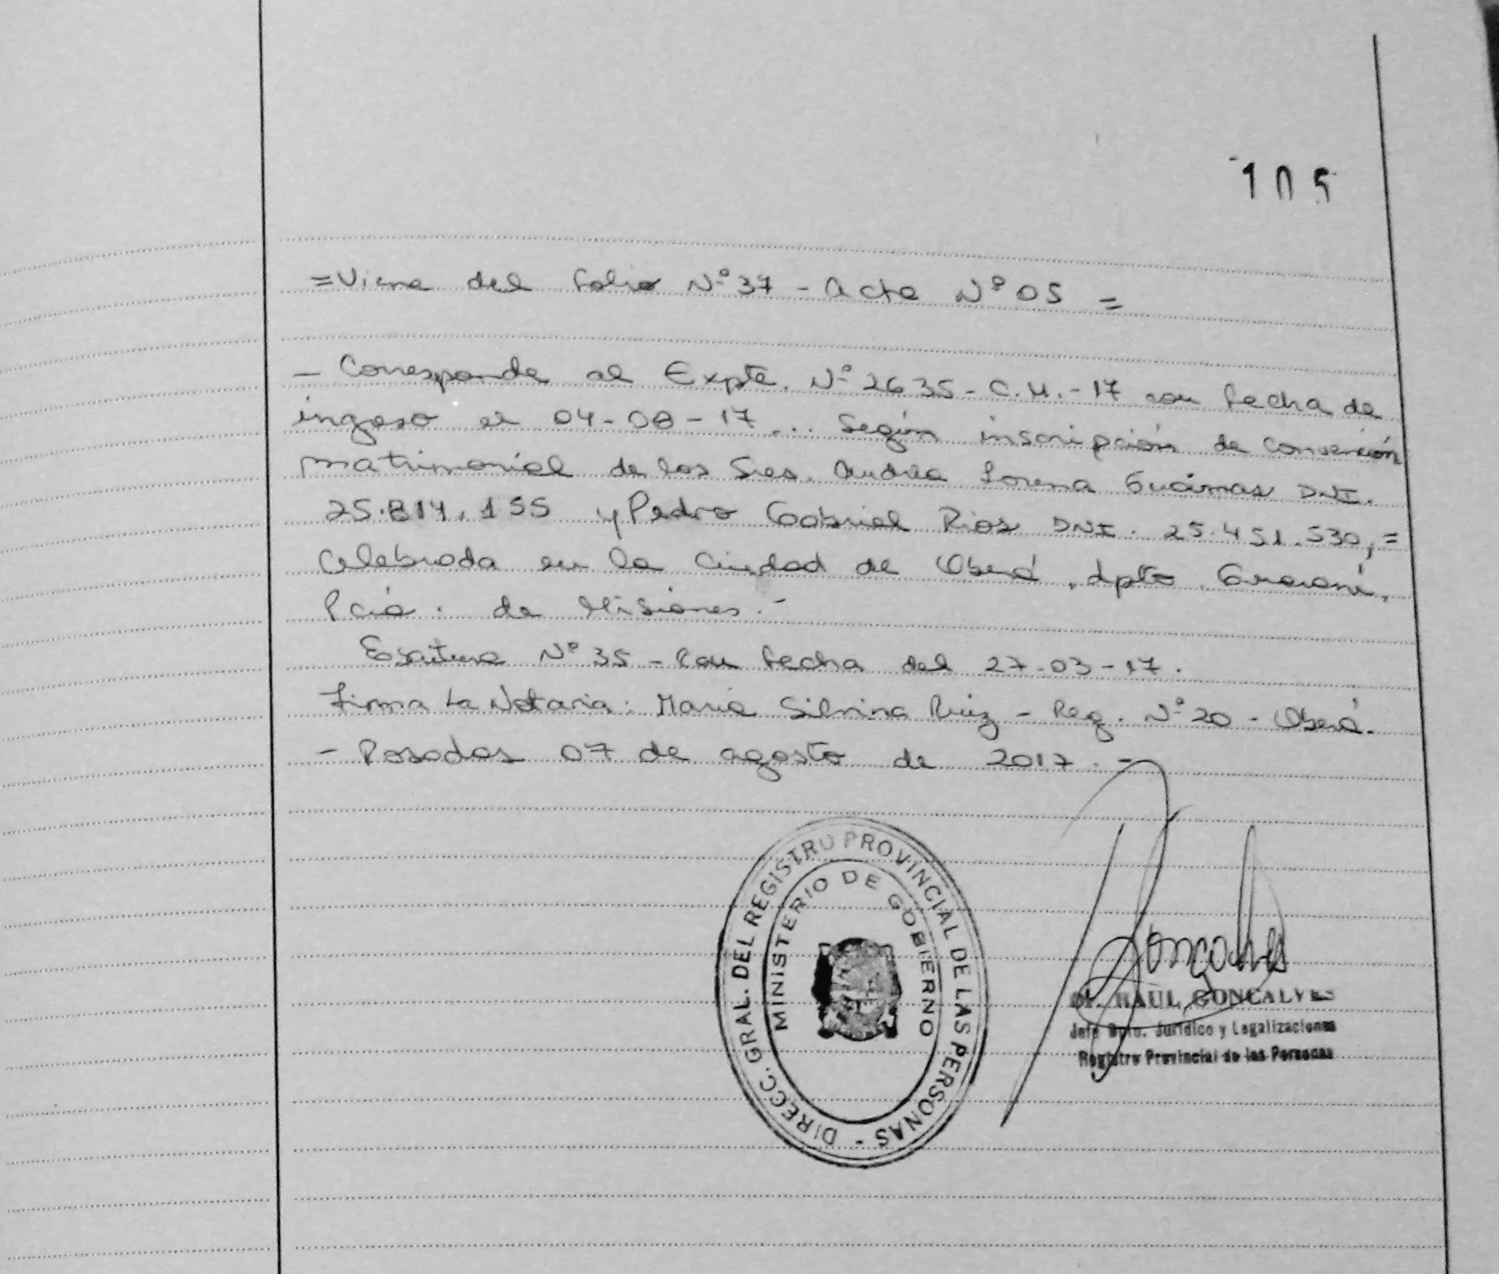 105
=Viene del folio Nº 37 - Acta Nº 05 =
- Corresponde al Expte. Nº 2635 - C.M. - 17 con fecha de
ingreso el 04-08-17 ... Según inscripción de Convención
matrimonial de los Sres. Andrea Lorena DNI.
25.814.155 y Pedro Gabriel Rios DNI. 25.451.530, =
Celebrada en la Ciudad de Oberá, dpto. Guaraní,
Pcia. de Misiones.-
Escritura Nº 35 - con fecha del 27-03-17.
Firma La Notaria: María Silvina Ruiz - Reg. Nº 20 - Oberá.
- Posadas 07 de agosto de 2017.-
DIRECC. GRAL. DEL REGISTRO PROVINCIAL DE LAS PERSONAS -
MINISTERIO DE GOBIERNO
Gonçalves
Dr. RAUL GONCALVES
Jefe Dpto. Jurídico y Legalizaciones
Registro Provincial de las Personas